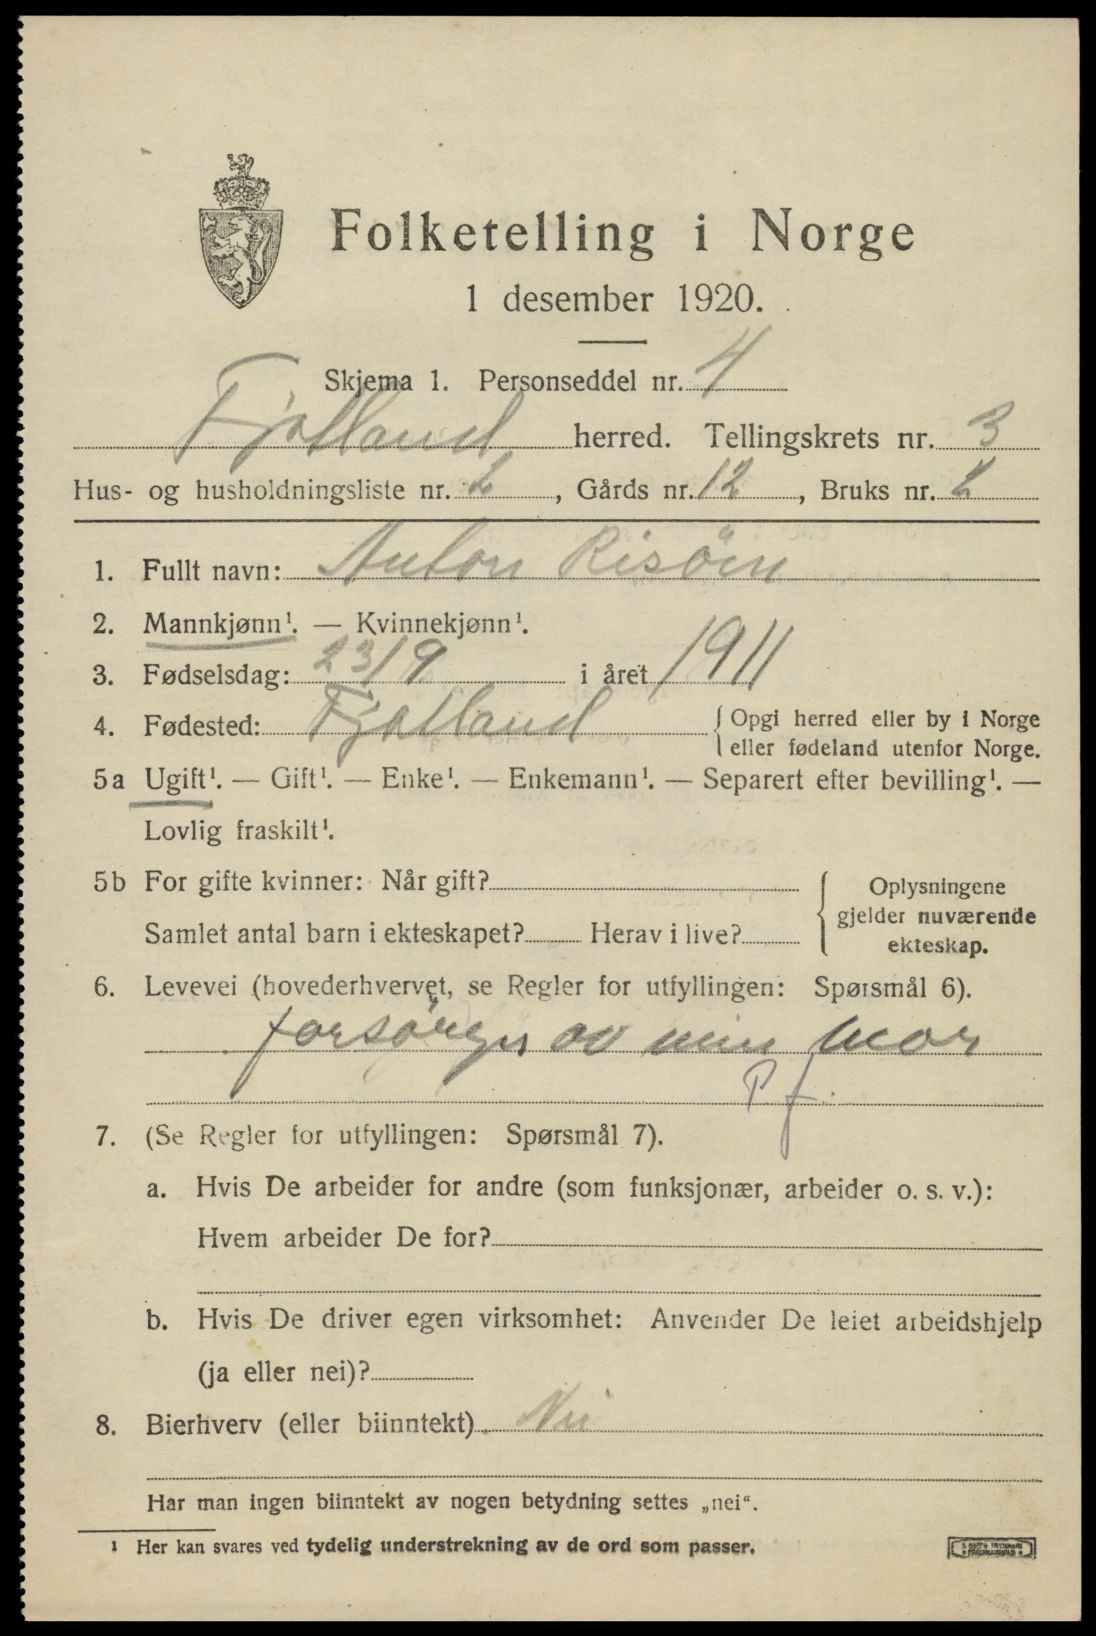 Folketelling i Norge
1 desember 1920.
Skjema 1. Personseddel nr. 4
Fjotland herred. Tellingskrets nr. 3
Hus- og husholdningsliste nr. 2, Gårds nr. 12, Bruks nr. 2
1. Fullt navn: Anton Risöin
2. Mannkjønn¹. — Kvinnekjønn¹.
3. Fødselsdag: 23/9 i året 1911
4. Fødested: Fjotland { Opgi herred eller by i Norge
eller fødeland utenfor Norge.
5a Ugift¹. — Gift¹. — Enke¹. — Enkemann¹. — Separert efter bevilling¹. —
Lovlig fraskilt¹.
5b For gifte kvinner: Når gift?
Samlet antal barn i ekteskapet? Herav i live?
Oplysningene
gjelder nuværende
ekteskap.
6. Levevei (hovederhvervet, se Regler for utfyllingen: Spørsmål 6).
forsörges av min mor
P f.
7. (Se Regler for utfyllingen: Spørsmål 7).
a. Hvis De arbeider for andre (som funksjonær, arbeider o. s. v.):
Hvem arbeider De for?
b. Hvis De driver egen virksomhet: Anvender De leiet arbeidshjelp
(ja eller nei)?
8. Bierhverv (eller biinntekt) Nei
Har man ingen biinntekt av nogen betydning settes „nei“.
¹ Her kan svares ved tydelig understrekning av de ord som passer.